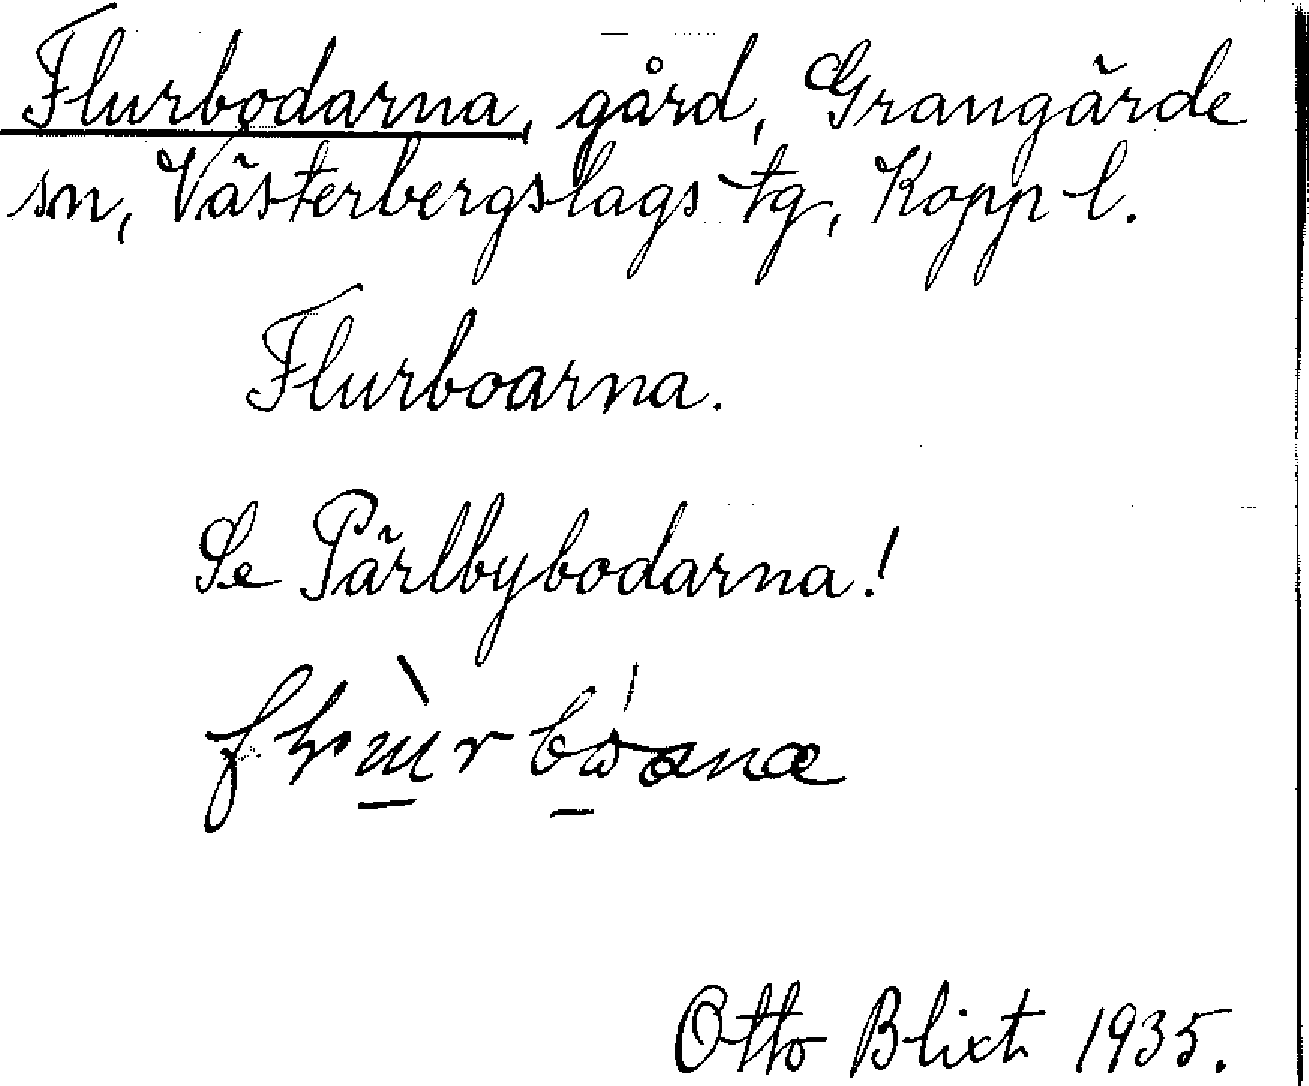 Flurbodarna, gård, Grangärde
sn, Västerbergslags tg, Kopp l.
Flurboarna.
Se Pärlbybodarna!
Otto Blixt 1935.